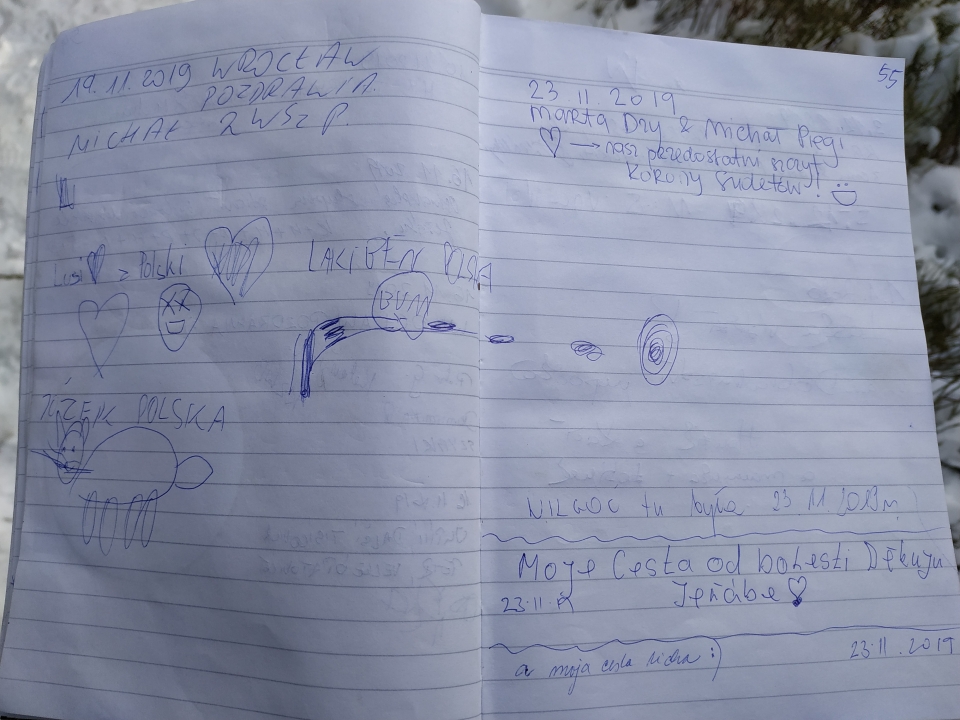 19.11.2019 WROCŁAW
POZDRAWIA.
MICHAŁ Z WSZ P.
Lusi z Polski
POLSKA
BUM
POLSKA
55
23.11.2019
Marta Dzy & Michał Piegi
→ nasz przedostatni szczyt
Korony Sudetów!
WILGOĆ tu była 23.11.2019r.
Moje Cesta od bolesti Děkuju
23.11. Jeřábe
a moja cesta :)
23.11.2019